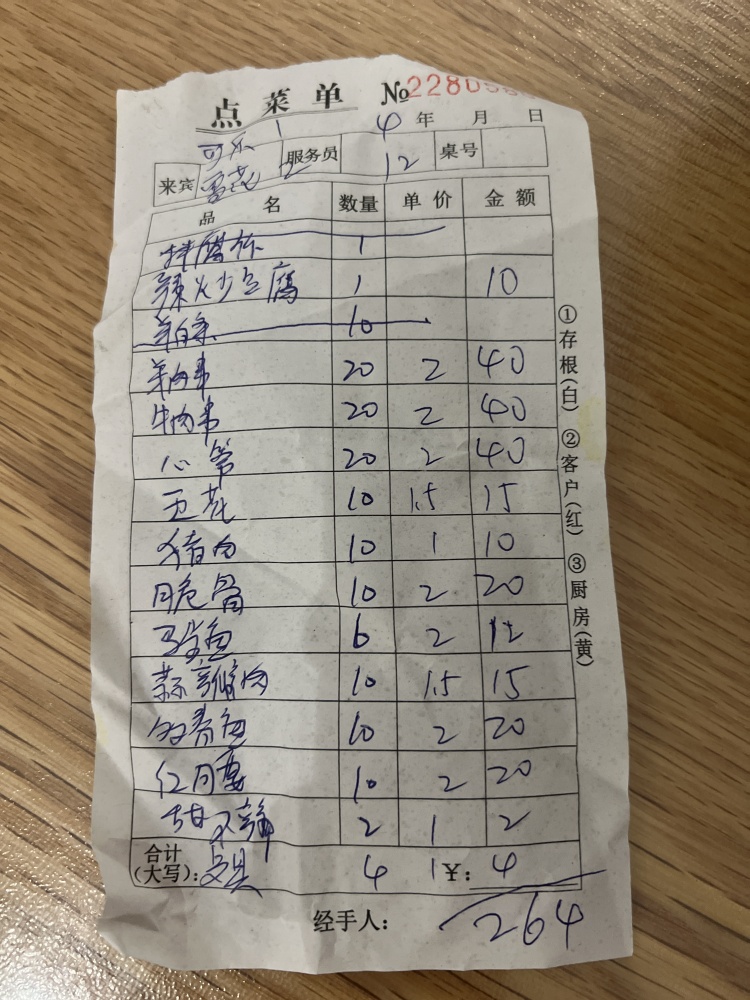 点菜单 №22805
可乐 1 4年 月 日
来宾 雪花 2 服务员 12 桌号
品名 数量 单价 金额
拌腐竹 1
辣炒豆腐 1 10
10
羊肉串 20 2 40
牛肉串 20 2 40
心管 20 2 40
五花 10 1.5 15
猪肉 10 1 10
脆骨 10 2 20
6 2 12
蒜瓣肉 10 1.5 15
多春鱼 10 2 20
红腰 10 2 20
甜不辣 2 1 2
合计
(大写): 餐具 4 1 ¥: 4
经手人: 264
①存根(白) ②客户(红) ③厨房(黄)